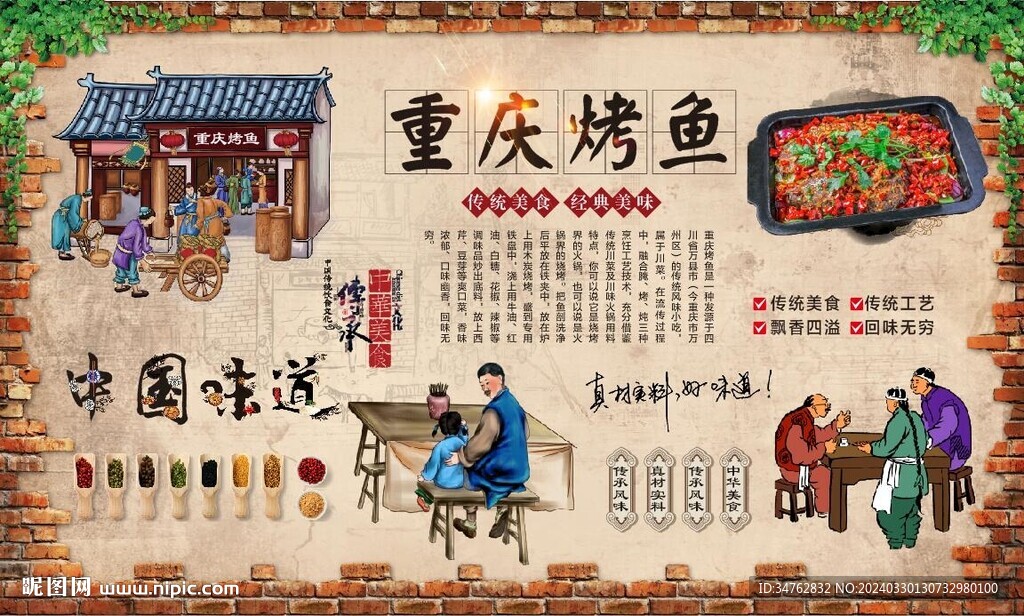 重庆烤鱼
重庆烤鱼
传统美食 经典美味
重庆烤鱼是一种发源于四
川省万县市（今重庆市万
州区）的传统风味小吃，
属于川菜。在流传过程
中，融合腌、烤、炖三种
烹饪工艺技术，充分借鉴
传统川菜及川味火锅用料
特点，你可以说它是烧烤
界的火锅，也可以说是火
锅界的烧烤。把鱼剖洗净
后平放在铁夹中，放在炉
上用木炭烧烤，盛到专用
铁盘中，浇上用牛油、红
油、白糖、花椒、辣椒等
调味品炒出底料，放上西
芹、豆芽等爽口菜，香味
浓郁，口味幽香，回味无
穷。
传统美食
传统工艺
飘香四溢
回味无穷
中国传统饮食文化
传承
中華美食
文化
中国味道
真材实料，好味道！
传承风味
真材实料
传承风味
中华美食
昵图网 www.nipic.com
ID:34762832 NO:20240330130732980100